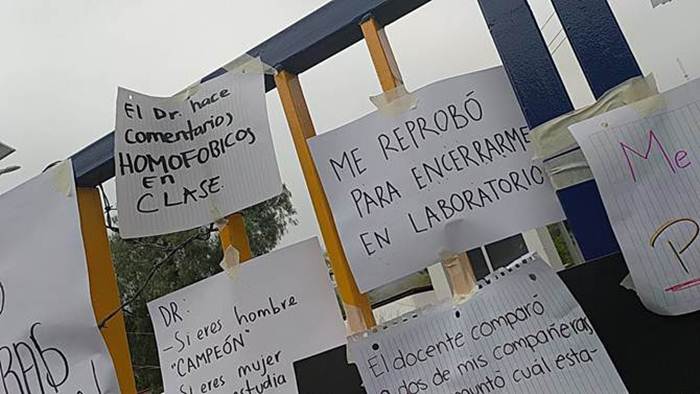 El Dr. hace
comentarios
HOMOFOBICOS
en
CLASE.
ME REPROBÓ
PARA ENCERRARME
EN LABORATORIO
Me
DR:
-Si eres hombre
"CAMPEÓN"
Si eres mujer
estudia
El docente comparó
a dos de mis compañeras
cuál esta-